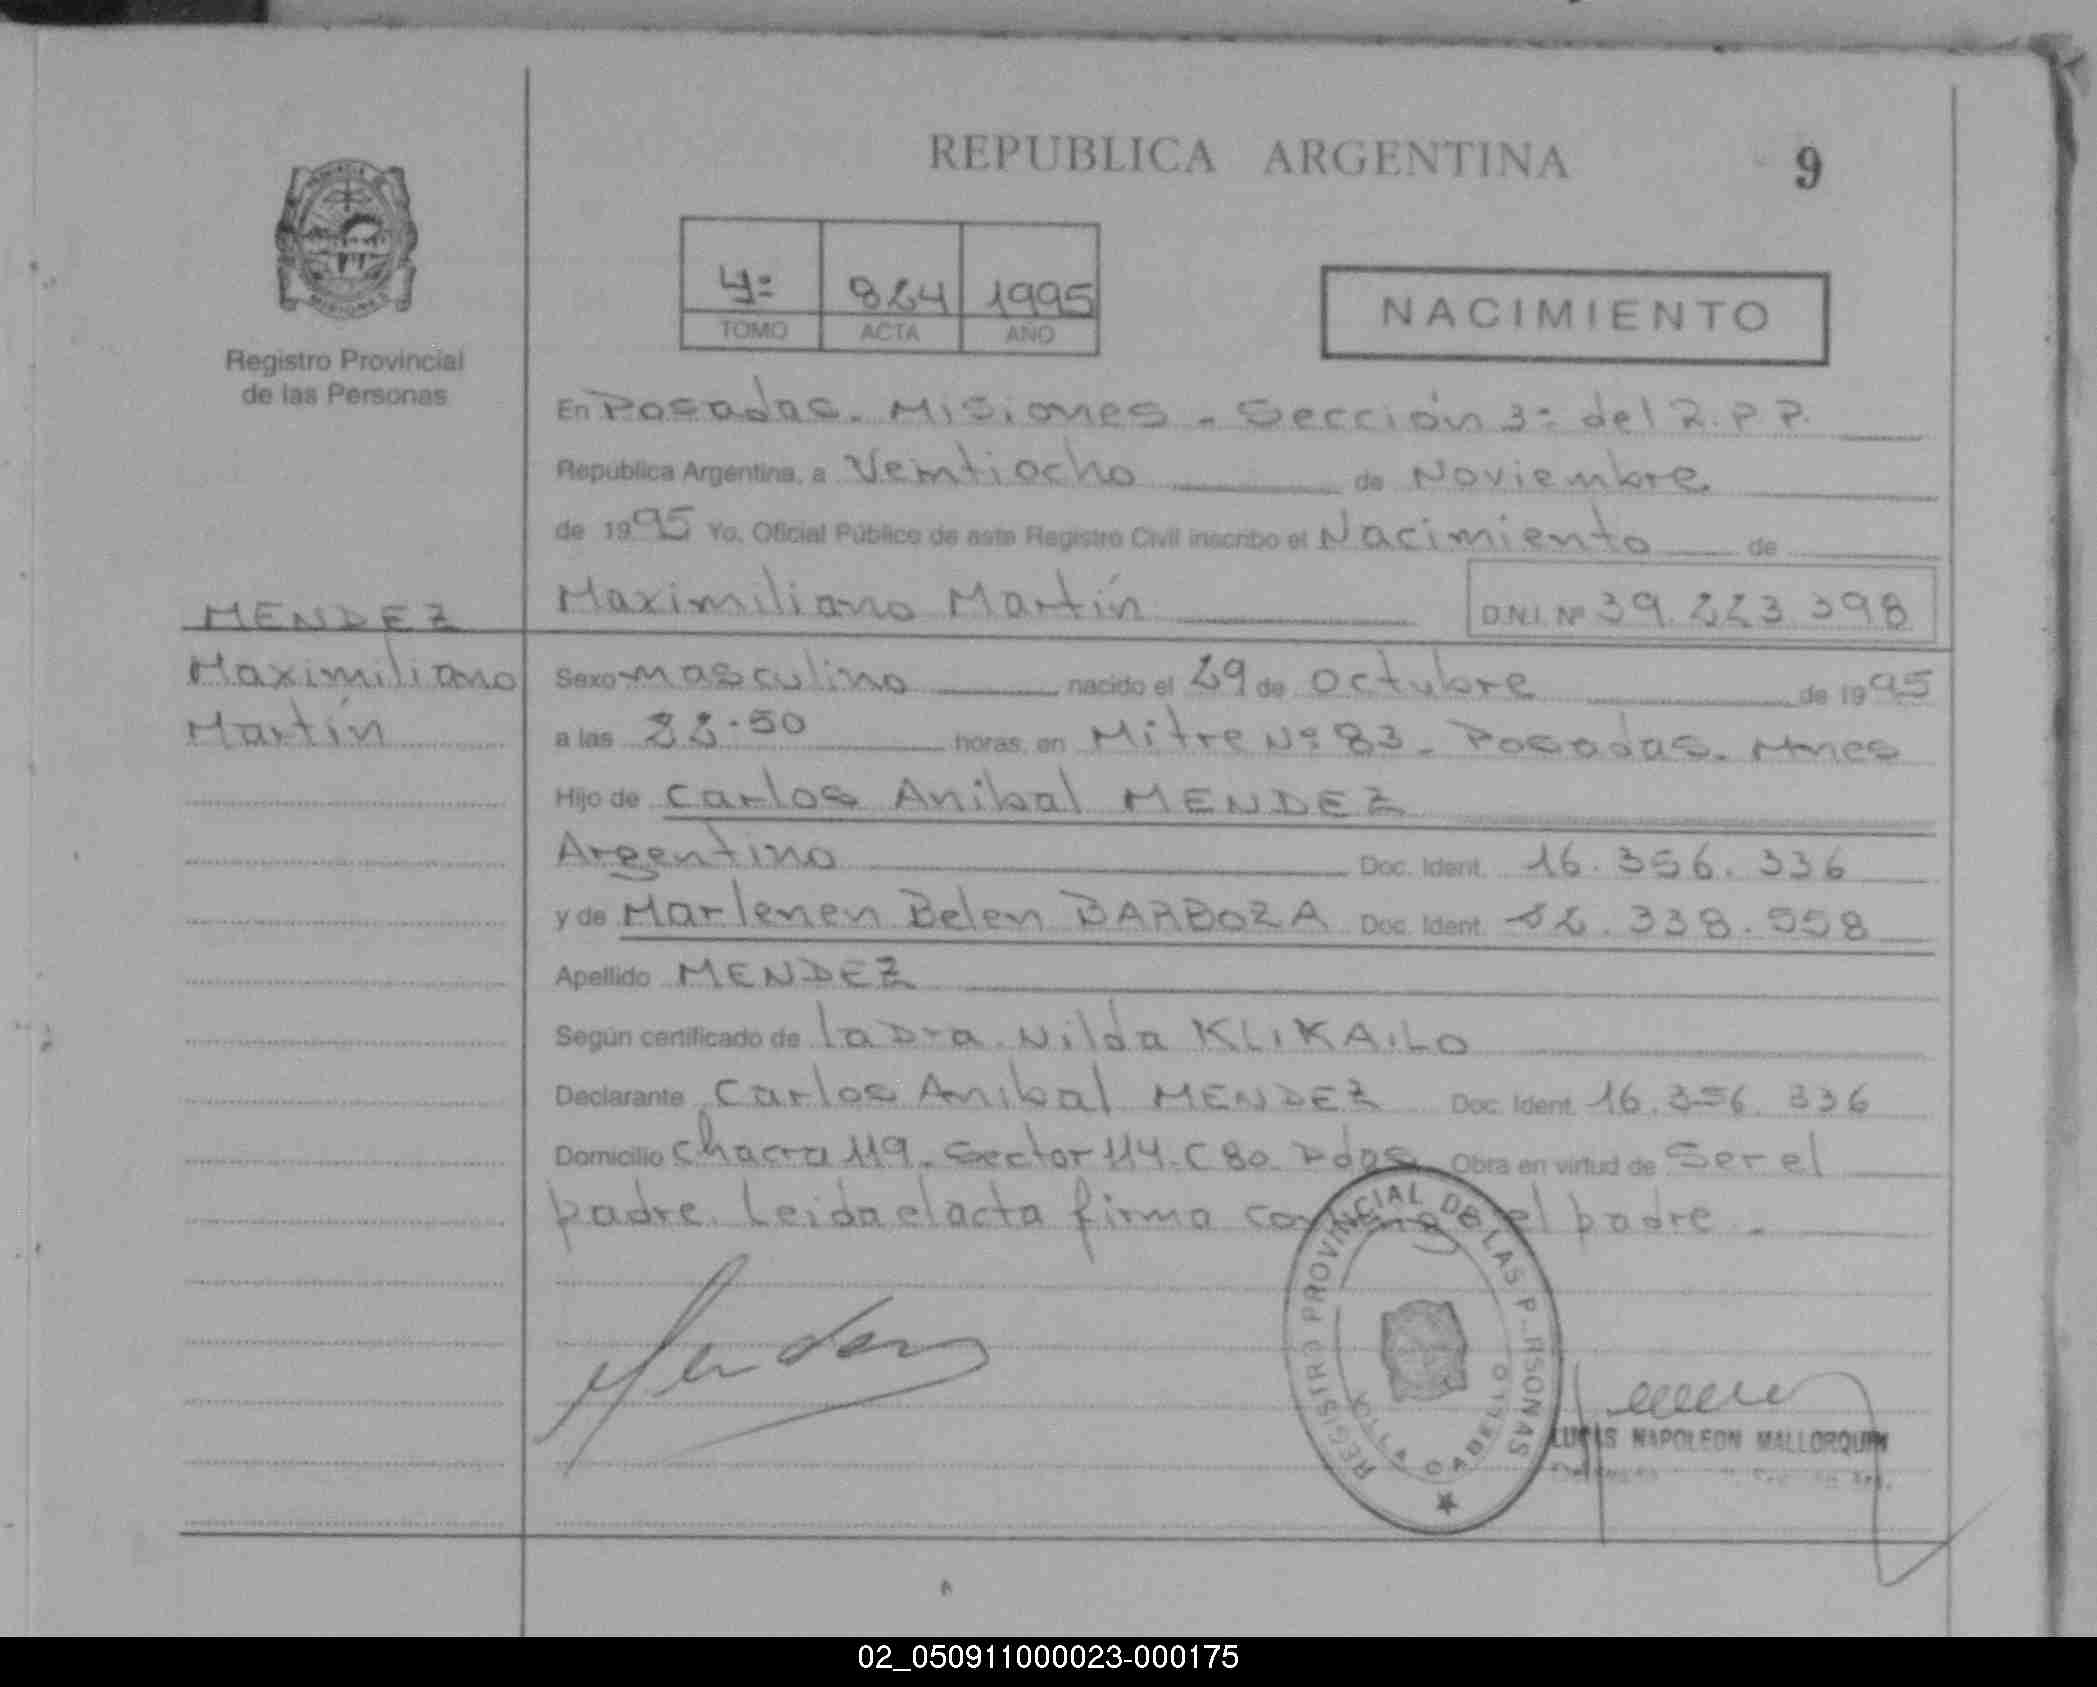 REPUBLICA ARGENTINA
9
4º 824 1995
TOMO ACTA AÑO
NACIMIENTO
Registro Provincial
de las Personas
En Posadas. Misiones - Sección 3º del R.P.P.
República Argentina, a Veintiocho de Noviembre
de 1995 Yo, Oficial Público de este Registro Civil inscribo el Nacimiento de
Maximiliano Martín D.N.I. Nº 39.223.398
MENDEZ
Maximiliano
Martín
Sexo masculino nacido el 29 de octubre de 1995
a las 22.50 horas, en Mitre Nº 83 - Posadas. Mnes
Hijo de Carlos Anibal MENDEZ
Argentino Doc. Ident. 16.356.336
y de Marlenen Belen BARBOZA Doc. Ident. 22.338.558
Apellido MENDEZ
Según certificado de la Dra. Nilda KLIKAILO
Declarante Carlos Anibal MENDEZ Doc. Ident. 16.356.336
Domicilio Chacra 119. Sector 114. C 80. Pdas Obra en virtud de Ser el
padre. Leida el acta firma conmigo el padre.
REGISTRO PROVINCIAL DE LAS PERSONAS
VILLA CABELLO
LUCAS NAPOLEON MALLORQUIN
02_050911000023-000175